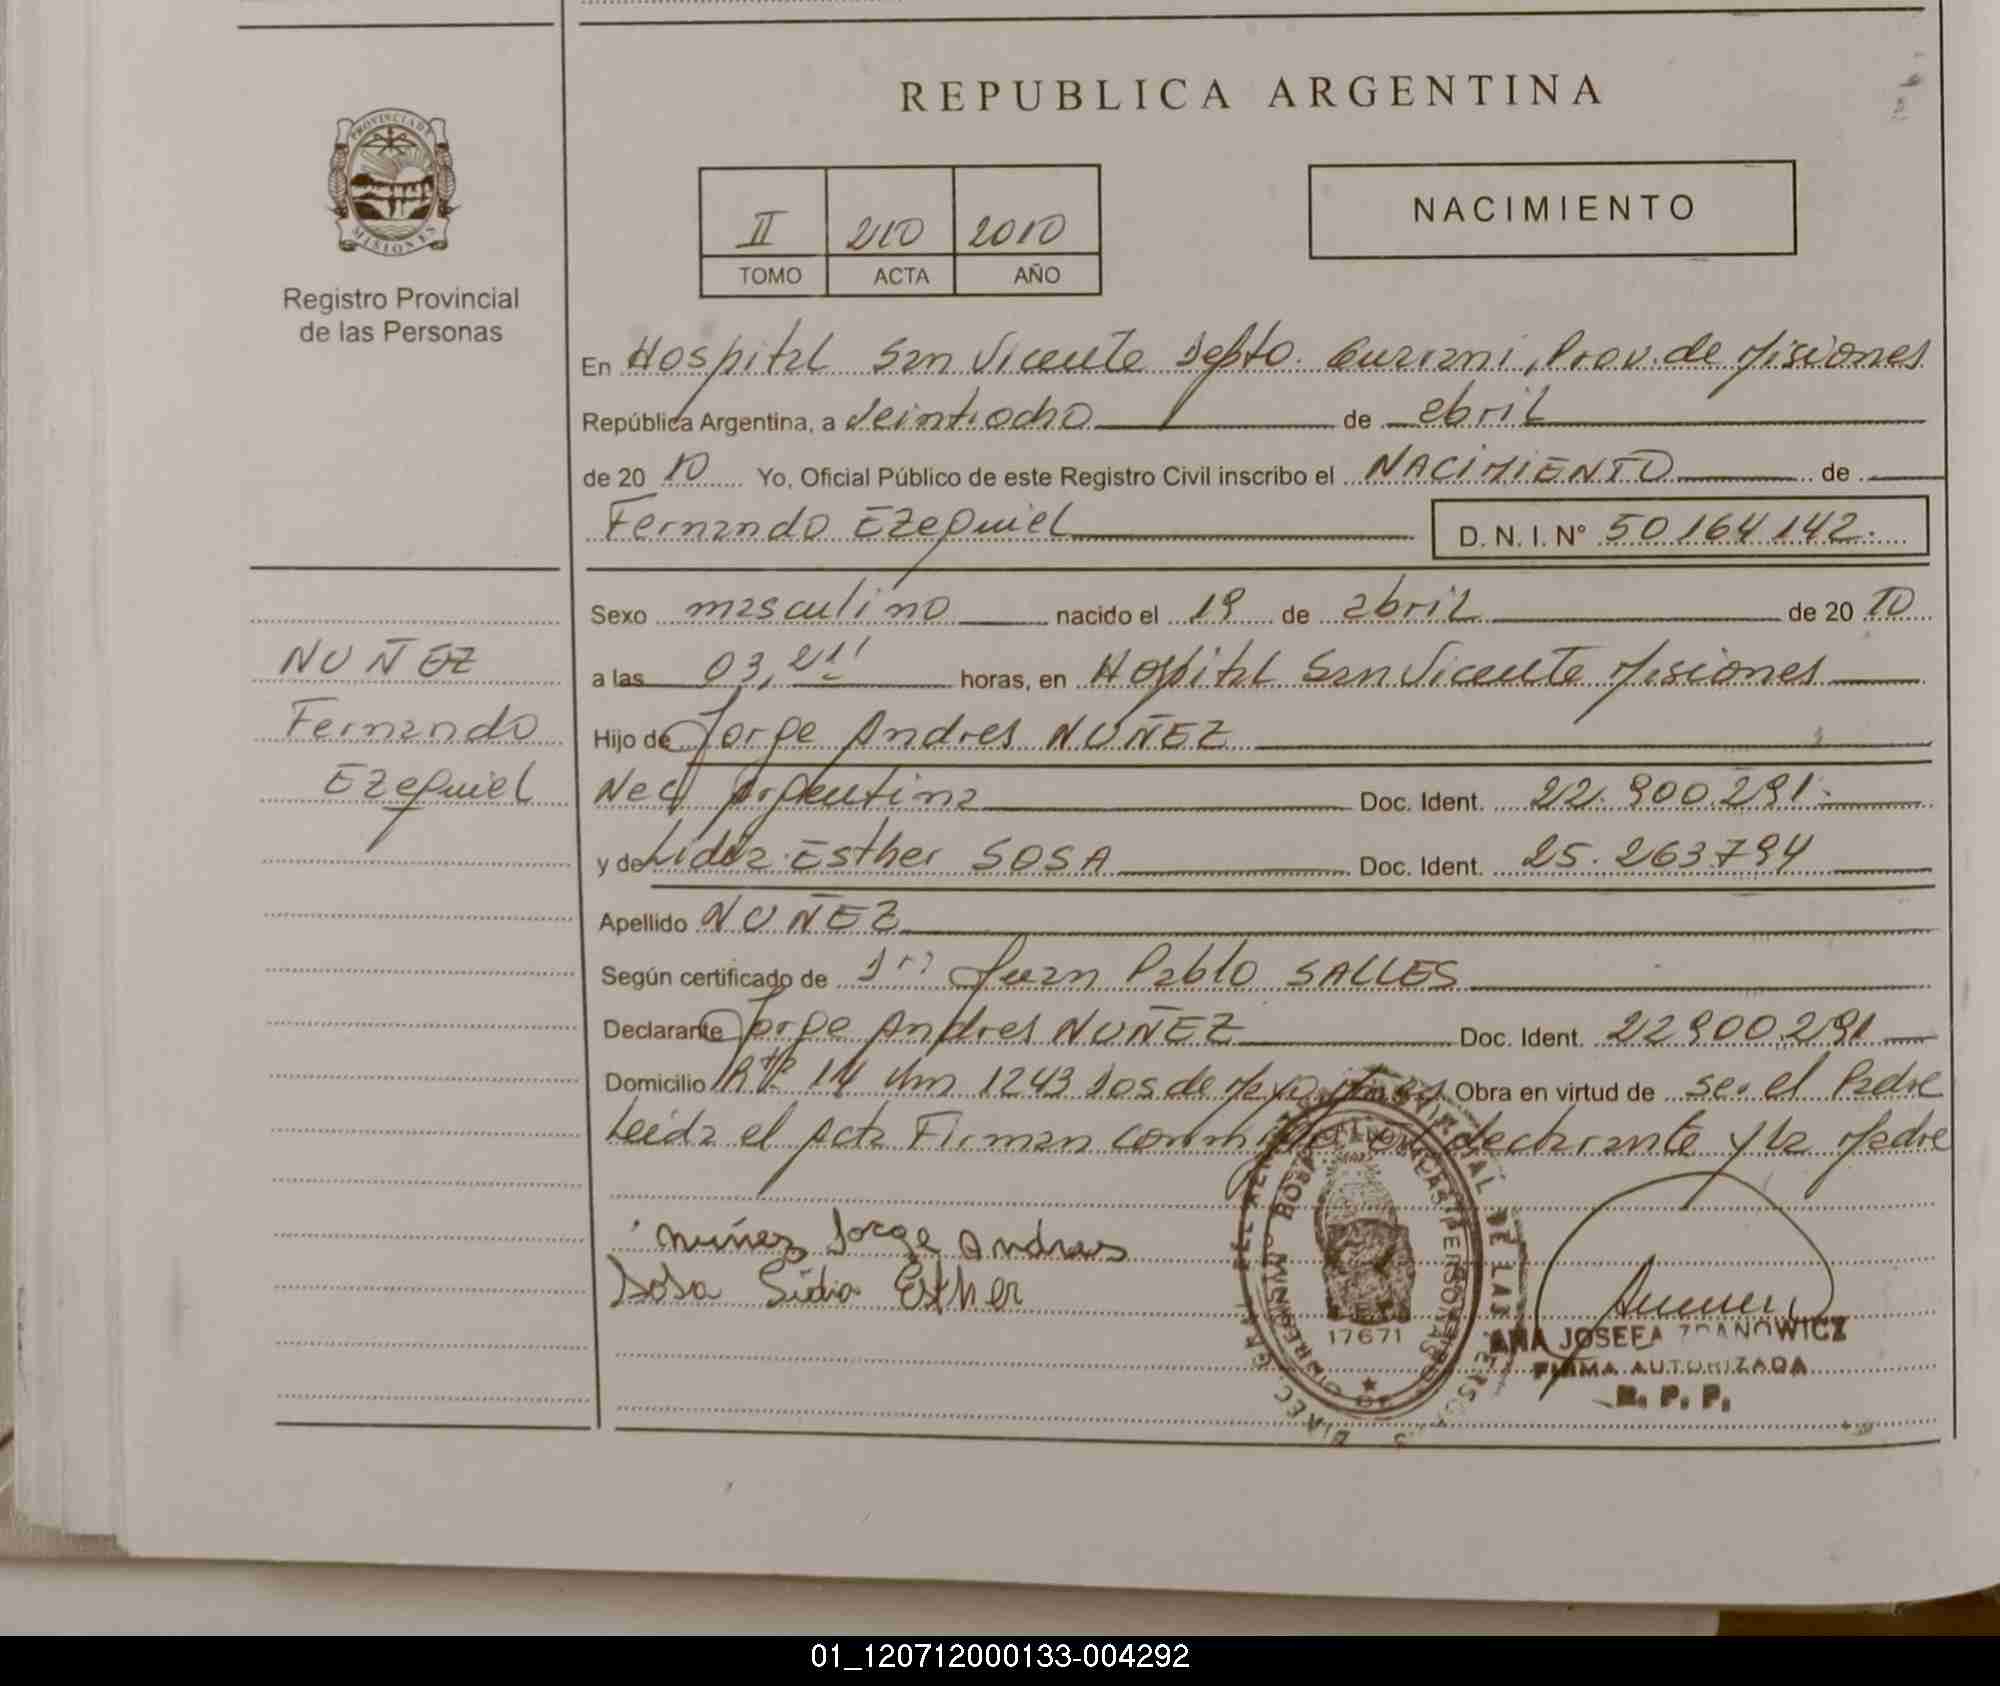 REPUBLICA ARGENTINA
PROVINCIA DE
MISIONES
Registro Provincial
de las Personas
II 210 2010
TOMO ACTA AÑO
NACIMIENTO
En Hospital San Vicente Depto. Guarani, Prov. de Misiones
República Argentina, a Veintiocho de abril
de 2010 Yo, Oficial Público de este Registro Civil inscribo el NACIMIENTO de
Fernando Ezequiel D. N. I. N° 50164142.
Sexo masculino nacido el 19 de abril de 2010
NUÑEZ
Fernando
Ezequiel
a las 03,21 horas, en Hospital San Vicente Misiones
Hijo de Jorge Andres NUÑEZ
Nac Argentina Doc. Ident. 22.900.291.
y de Lidia Esther SOSA Doc. Ident. 25.263794
Apellido NUÑEZ
Según certificado de Juan Pablo SALLES
Declarante Jorge Andres NUÑEZ Doc. Ident. 22900291
Domicilio 14 Km 1243 Dos de Mayo Obra en virtud de ser el Padre
Leida el Acta Firman conmigo el declarante y la Madre
Nuñez Jorge Andres
Sosa Lidia Esther
17671
ANA JOSEFA ZDANOWICZ
FIRMA AUTORIZADA
R. P. P.
01_120712000133-004292